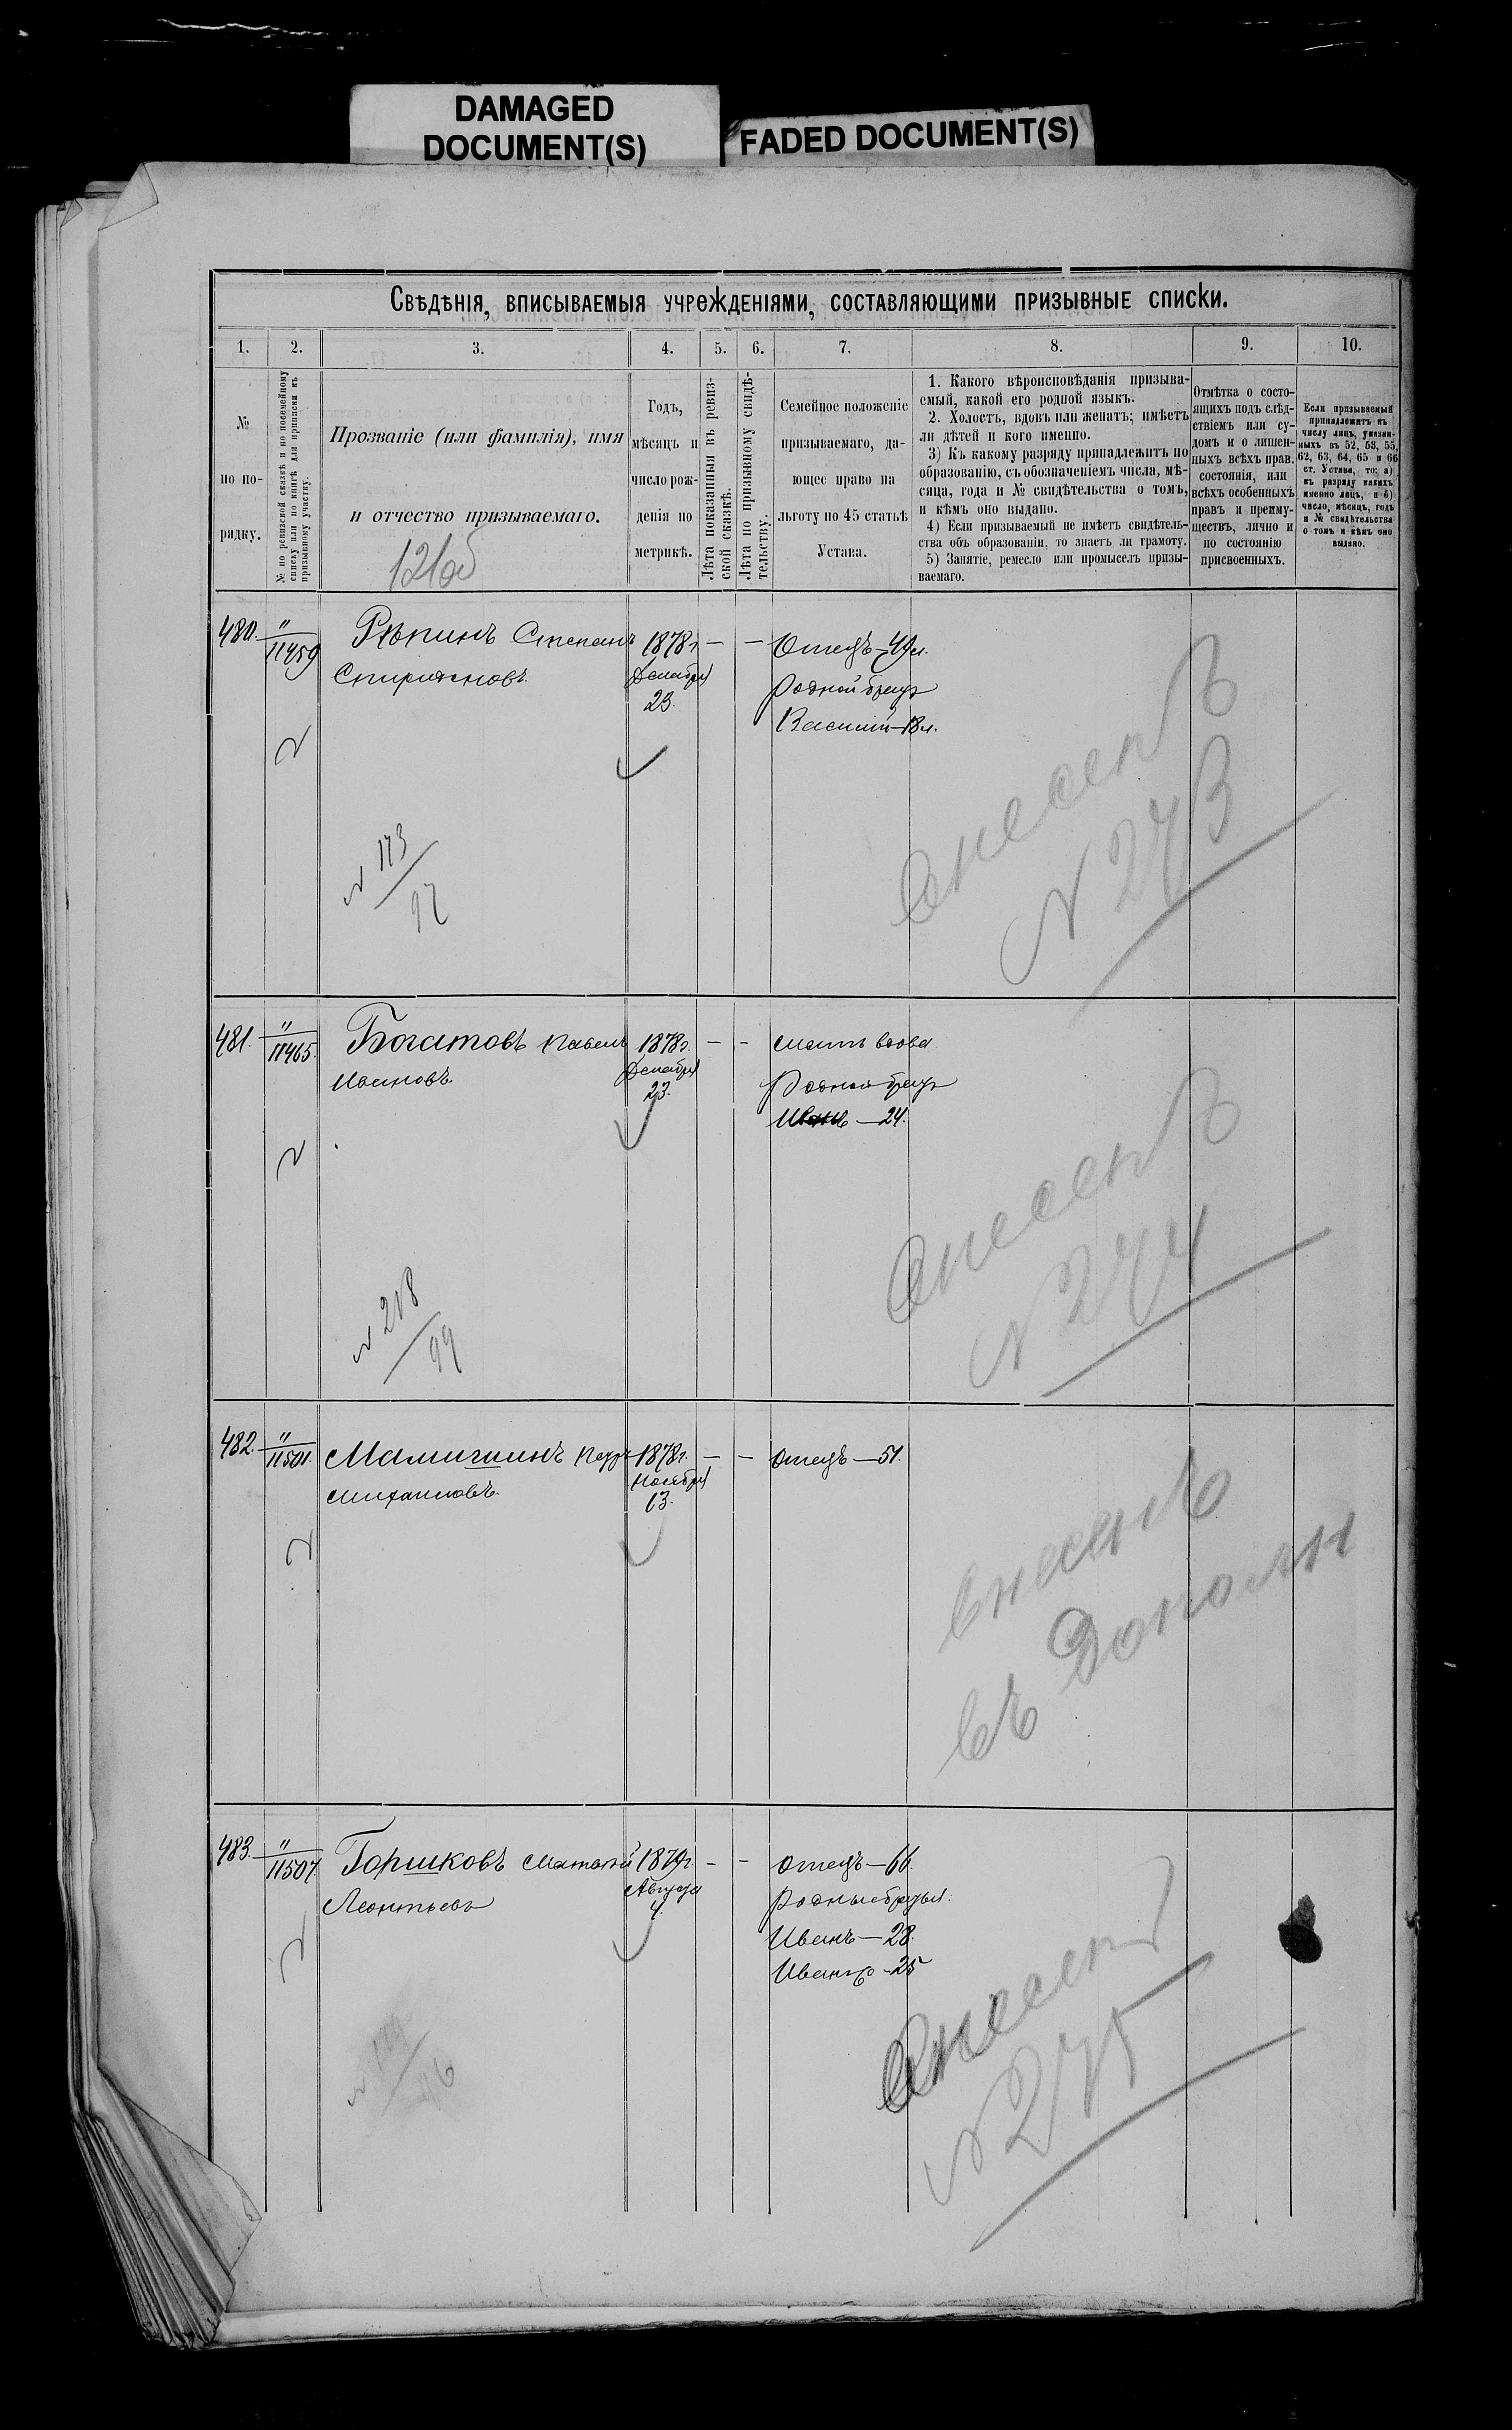 DAMAGED
DOCUMENT(S)
FADED DOCUMENT(S)
Свѣдѣнія, вписываемыя учрежденіями, составляющими призывные списки.
1.
2.
3.
4.
5.
6.
7.
8.
9.
10.
№
по по-
рядку.
№ по ревизской сказкѣ и по посемейному
списку или по книгѣ для приписки къ
призывному участку.
Прозваніе (или фамилія), имя
и отчество призываемаго.
121об
Годъ,
мѣсяцъ и
число рож-
денія по
метрикѣ.
Лѣта показанныя въ ревиз-
ской сказкѣ.
Лѣта по призывному свидѣ-
тельству.
Семейное положеніе
призываемаго, да-
ющее право на
льготу по 45 статьѣ
Устава.
1. Какого вѣроисповѣданія призыва-
емый, какой его родной языкъ.
2. Холостъ, вдовъ или женатъ; имѣетъ
ли дѣтей и кого именно.
3) Къ какому разряду принадлежитъ по
образованію, съ обозначеніемъ числа, мѣ-
сяца, года и № свидѣтельства о томъ,
и кѣмъ оно выдано.
4) Если призываемый не имѣетъ свидѣтель-
ства объ образованіи, то знаетъ ли грамоту.
5) Занятіе, ремесло или промыселъ призы-
ваемаго.
Отмѣтка о состо-
ящихъ подъ слѣд-
ствіемъ или су-
домъ и о лишен-
ныхъ всѣхъ прав.
состоянія, или
всѣхъ особенныхъ
правъ и преиму-
ществъ, лично и
по состоянію
присвоенныхъ.
Если призываемый
принадлежитъ къ
числу лицъ, указан-
ныхъ въ 52, 53, 55,
62, 63, 64, 65 и 66
ст. Устава, то: а)
къ разряду какихъ
именно лицъ, и б)
число, мѣсяцъ, годъ
и № свидѣтельства
о томъ и кѣмъ оно
выдано.
480.
"
11459
Рѣпинъ Степанъ
Спиридоновъ.
1878г.
Декабря
23.
—
—
Отецъ—49л.
Родной братъ
Василій—13л.
N 173
97
внесенъ
N 273
481.
"
11465.
Богатовъ Павелъ
Ивановъ.
1878г.
Декабря
23.
—
-
мать вдова
Родной братъ
Иванъ—24.
N 218
99
внесенъ
N 274
482.
"
11501.
Мамичинъ Петръ
Михаиловъ.
1878г.
Ноября
13.
—
—
отецъ—51.
внесенъ
въ Дополн
483.
"
11507.
Горшковъ Матвѣй
Леонтьевъ
1879г.
Августа
4.
—
—
отецъ—66.
родные братья:
Иванъ—28.
Иванъ-25
внесенъ
N 275